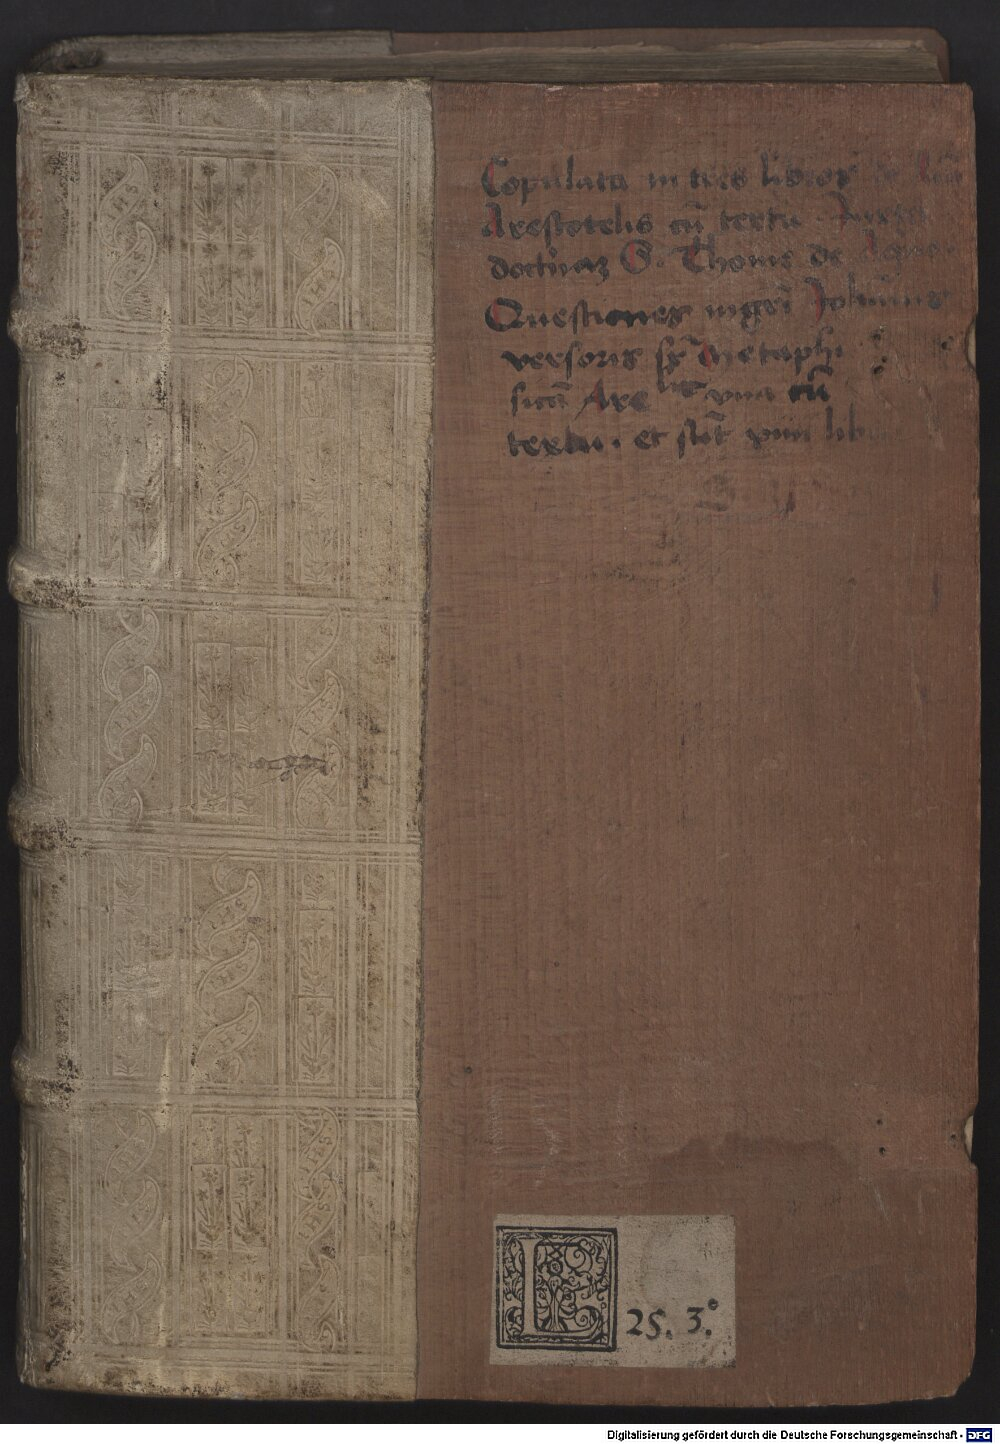 Copulata in tres libros de
Arestotelis cū textu Iuxta
doctrinaʒ S. Thome de Aquo
Questiones mgr̄i Johānnis
versoris sꝑ Metaphi
sicā Are una cū
textu. et sūt xiiii libri
IHS
25. 3.°
Digitalisierung gefördert durch die Deutsche Forschungsgemeinschaft - DFG